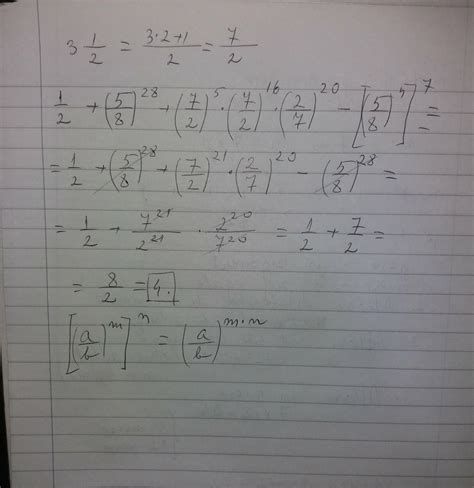 3 1/2 = (3·2+1)/2 = 7/2
1/2 + (5/8)^28 + (7/2)^5 · (7/2)^16 · (2/7)^20 − [(5/8)^4]^7 =
= 1/2 + (5/8)^28 + (7/2)^21 · (2/7)^20 − (5/8)^28 =
= 1/2 + 7^21/2^21 · 2^20/7^20 = 1/2 + 7/2 =
= 8/2 = 4.
[(a/b)^m]^n = (a/b)^m·n